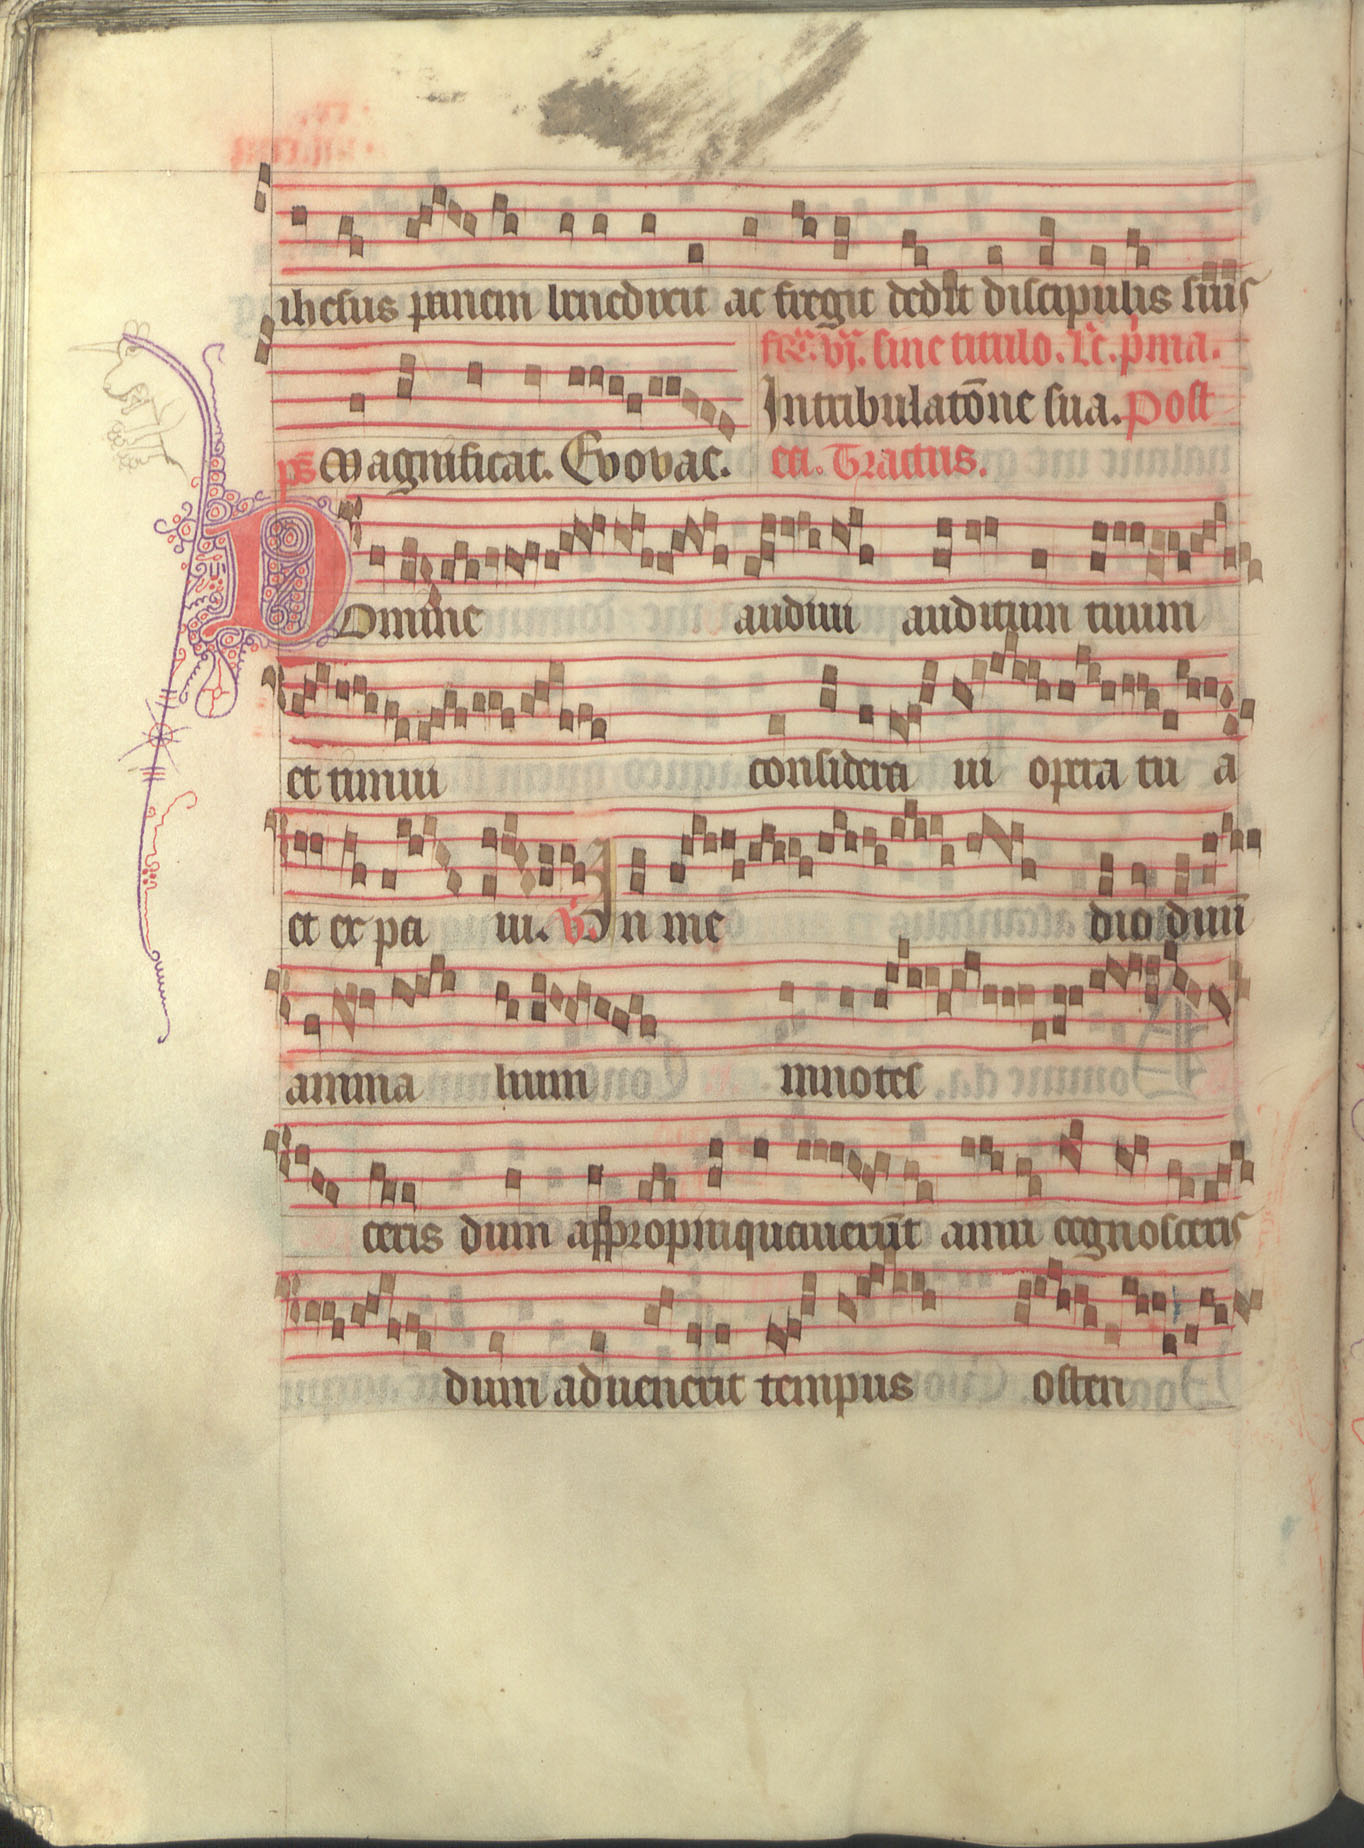 ihesus panem benedixit ac fregit dedit discipulis suis
fer. vj. sine titulo. Lc. p'ma.
In tribulatōne sua. Post
ps Magnificat. Evovae. ea. Tractus.
Domine audiui auditum tuum
et timui considera ui opera tu a
et ex pa ui. v. In me dio duū
anima lium innotes
ceris dum appropinquauerūt anni cognosceris
dum aduenerit tempus osten